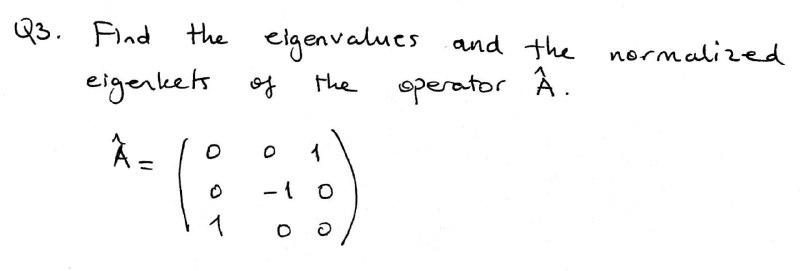 Q3. Find the eigenvalues and the normalized
eigenkets of the operator Â.
Â = ( 0 0 1
0 -1 0
1 0 0 )